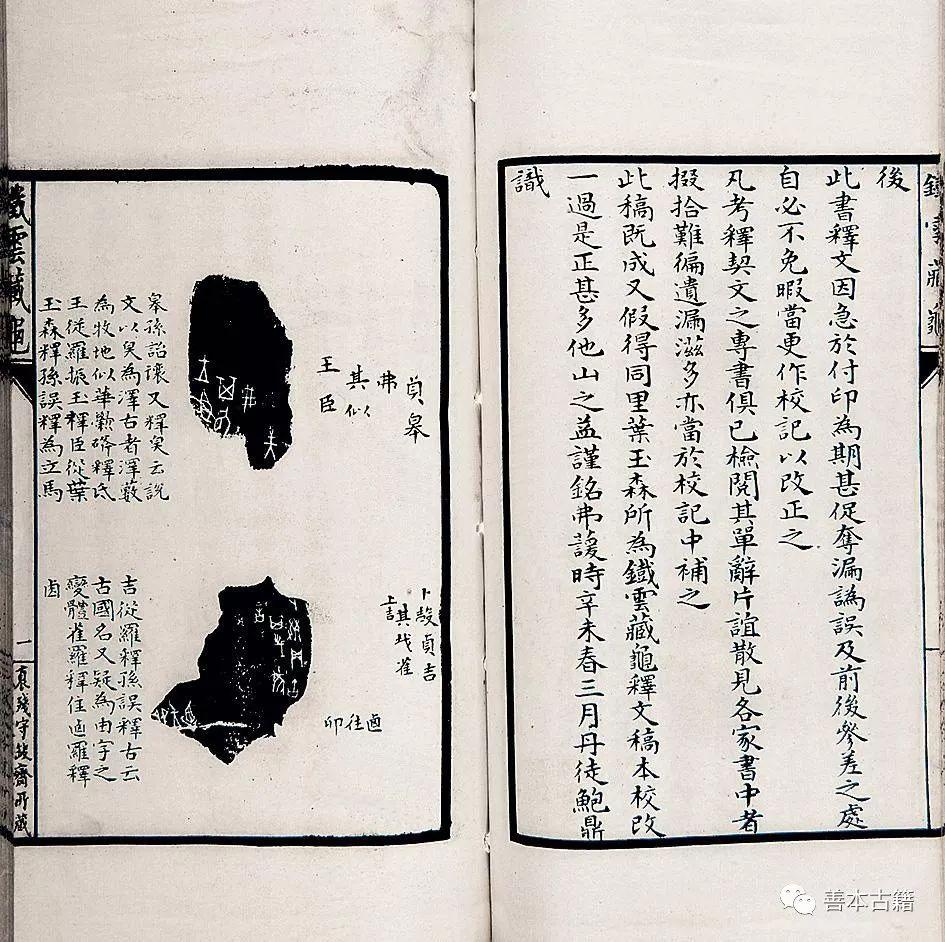 後
此書釋文因急於付印為期甚促奪漏譌誤及前後參差之處
自必不免暇當更作校記以改正之
凡考釋契文之專書俱已檢閱其單辭片誼散見各家書中者
掇拾難徧遺漏滋多亦當於校記中補之
此稿既成又假得同里葉玉森所為鐵雲藏龜釋文稿本校改
一過是正甚多他山之益謹銘弗諼時辛未春三月丹徒鮑鼎
識
貞皋
弗
其似
王臣
皋孫詒讓又釋㚖云說
文以㚖為澤古者澤藪
為牧地似華學涑釋氏
王從羅振玉釋臣從葉
玉森釋孫誤釋為立馬
卜㱿貞吉
其戋雀
上吉
卣往卯
吉從羅釋孫誤釋古云
古國名又疑為由字之
變體雀羅釋往卣羅釋
卣
鐵雲藏龜
一
抱殘守缺齋所藏
善本古籍